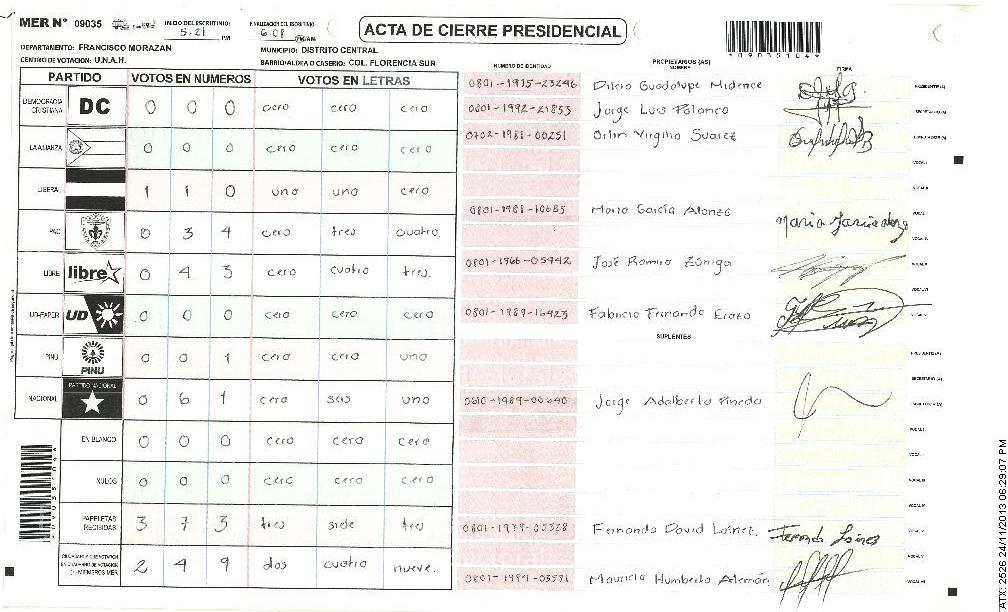 MER N° 09035
INICIO DEL ESCRUTINIO: 5:21 PM
FINALIZACION DEL ESCRUTINIO: 6:08
ACTA DE CIERRE PRESIDENCIAL
*09035104*
DEPARTAMENTO: FRANCISCO MORAZAN
MUNICIPIO: DISTRITO CENTRAL
CENTRO DE VOTACION: U.N.A.H.
BARRIO/ALDEA O CASERIO: COL. FLORENCIA SUR
PARTIDO VOTOS EN NUMEROS VOTOS EN LETRAS
DEMOCRACIA CRISTIANA DC 0 0 0 cero cero cero
LA ALIANZA 0 0 0 cero cero cero
LIBERAL 1 1 0 uno uno cero
PAC 0 3 4 cero tres cuatro
LIBRE libre 0 4 3 cero cuatro tres.
UD-FAPER UD 0 0 0 cero cero cero
PINU PINU 0 0 1 cero cero uno
NACIONAL PARTIDO NACIONAL 0 6 1 cero seis uno
EN BLANCO 0 0 0 cero cero cero
NULOS 0 0 0 cero cero cero
PAPELETAS RECIBIDAS 3 7 3 tres siete tres
2 4 9 dos cuatro nueve.
NUMERO DE IDENTIDAD
PROPIETARIOS (AS)
NOMBRE
FIRMA
0801-1975-23296 Dilcia Guadalupe Midence PRESIDENTE(A)
0801-1992-21853 Jorge Luis Polanco SECRETARIO(A)
0702-1988-00251 Orlin Virgilio Suarez
VOCAL I
VOCAL II
0801-1988-10685 Maria Garcia Alonzo Maria Garcia Alonzo
VOCAL IV
0801-1966-05942 José Ramiro Zúniga VOCAL V
VOCAL VI
0801-1989-16423 Fabricio Fernando Erazo
SUPLENTES
PRESIDENTE(A)
SECRETARIO (A)
0610-1989-00640 Jorge Adalberto Pineda
VOCAL I
0801-1979-05328 Fernando David Lainez Fernando Lainez VOCAL V
0801-1991-03581 Mauricio Humberto Alemán
ATX: 2526 24/11/2013 06:29:07 PM